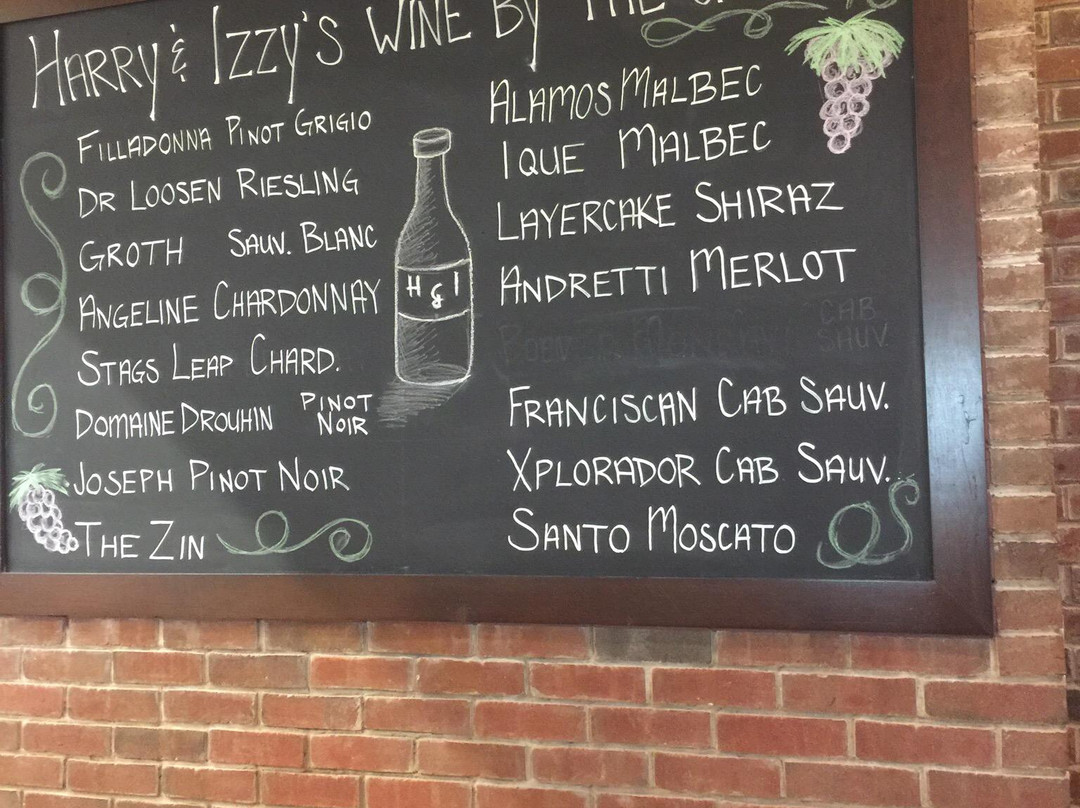 HARRY & IZZY'S WINE BY THE
FILLADONNA PINOT GRIGIO
DR LOOSEN RIESLING
GROTH SAUV. BLANC
ANGELINE CHARDONNAY
STAGS LEAP CHARD.
DOMAINE DROUHIN PINOT NOIR
JOSEPH PINOT NOIR
THE ZIN
H & I
ALAMOS MALBEC
IQUE MALBEC
LAYERCAKE SHIRAZ
ANDRETTI MERLOT
CAB SAUV
FRANCISCAN CAB SAUV.
XPLORADOR CAB SAUV.
SANTO MOSCATO